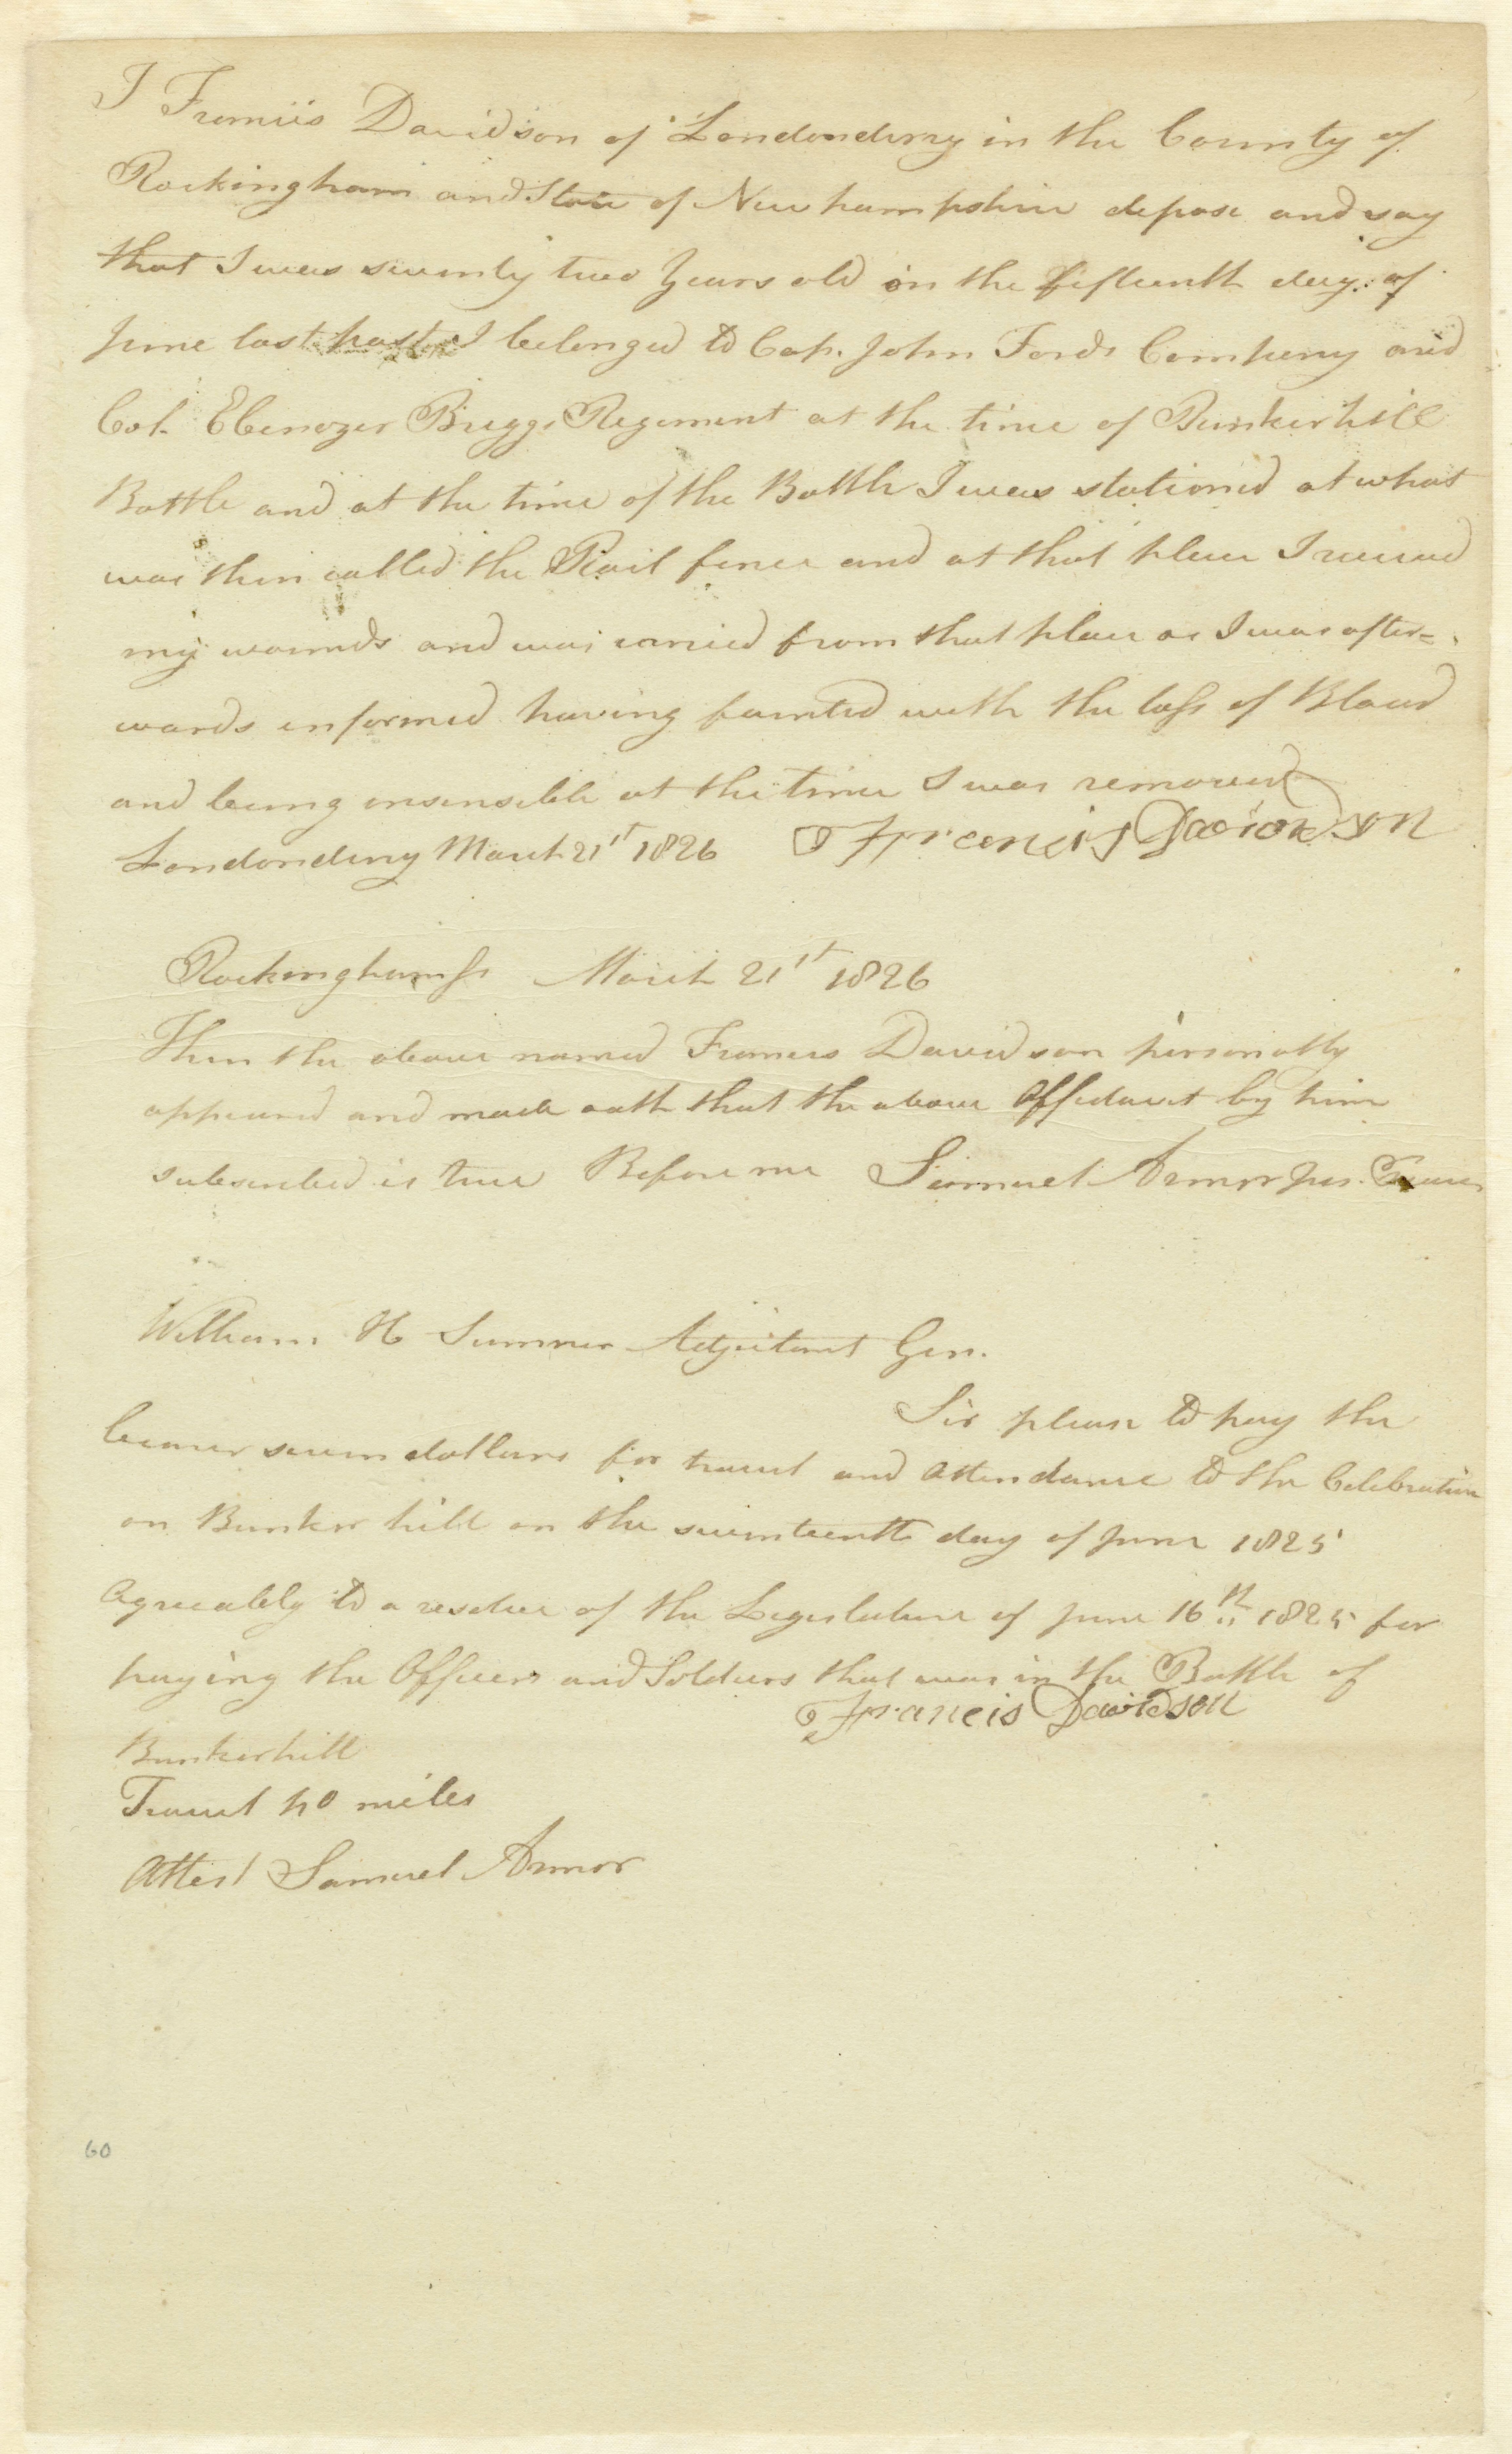 I Francis Davidson of Londonderry in the County of
Rockingham and State of Newhampshire depose and say
that I was seventy two years old on the fifteenth day of
June last past I belonged to Cap. John Fords Company and
Col. Ebenezer Briggs Regiment at the time of Bunkerhill
Battle and at the time of the Battle I was stationed at what
was then called the Rail fence and at that place I received
my wounds and was carried from that place as I was after=
wards informed having fainted with the loss of Bloud
and being insensible at the time I was removed
Londonderry March 21st 1826 Francis Davidson
Rockingham ss March 21st 1826
Then the above named Francis Davidson personally
appeared and made oath that the above Affidavit by him
subscribed is true Before me Samuel Armor Jus. Peace
William H Sumner Adjutant Gen.
Sir please to pay the
bearer seven dollars for travel and Attendance to the Celebration
on Bunker hill on the seventeenth day of June 1825
Agreeably to a resolve of the Legislature of June 16th 1825 for
paying the Officers and Soldiers that was in the Battle of
Francis Davidson
Bunkerhill
Travel 40 miles
Attest Samuel Armor
60